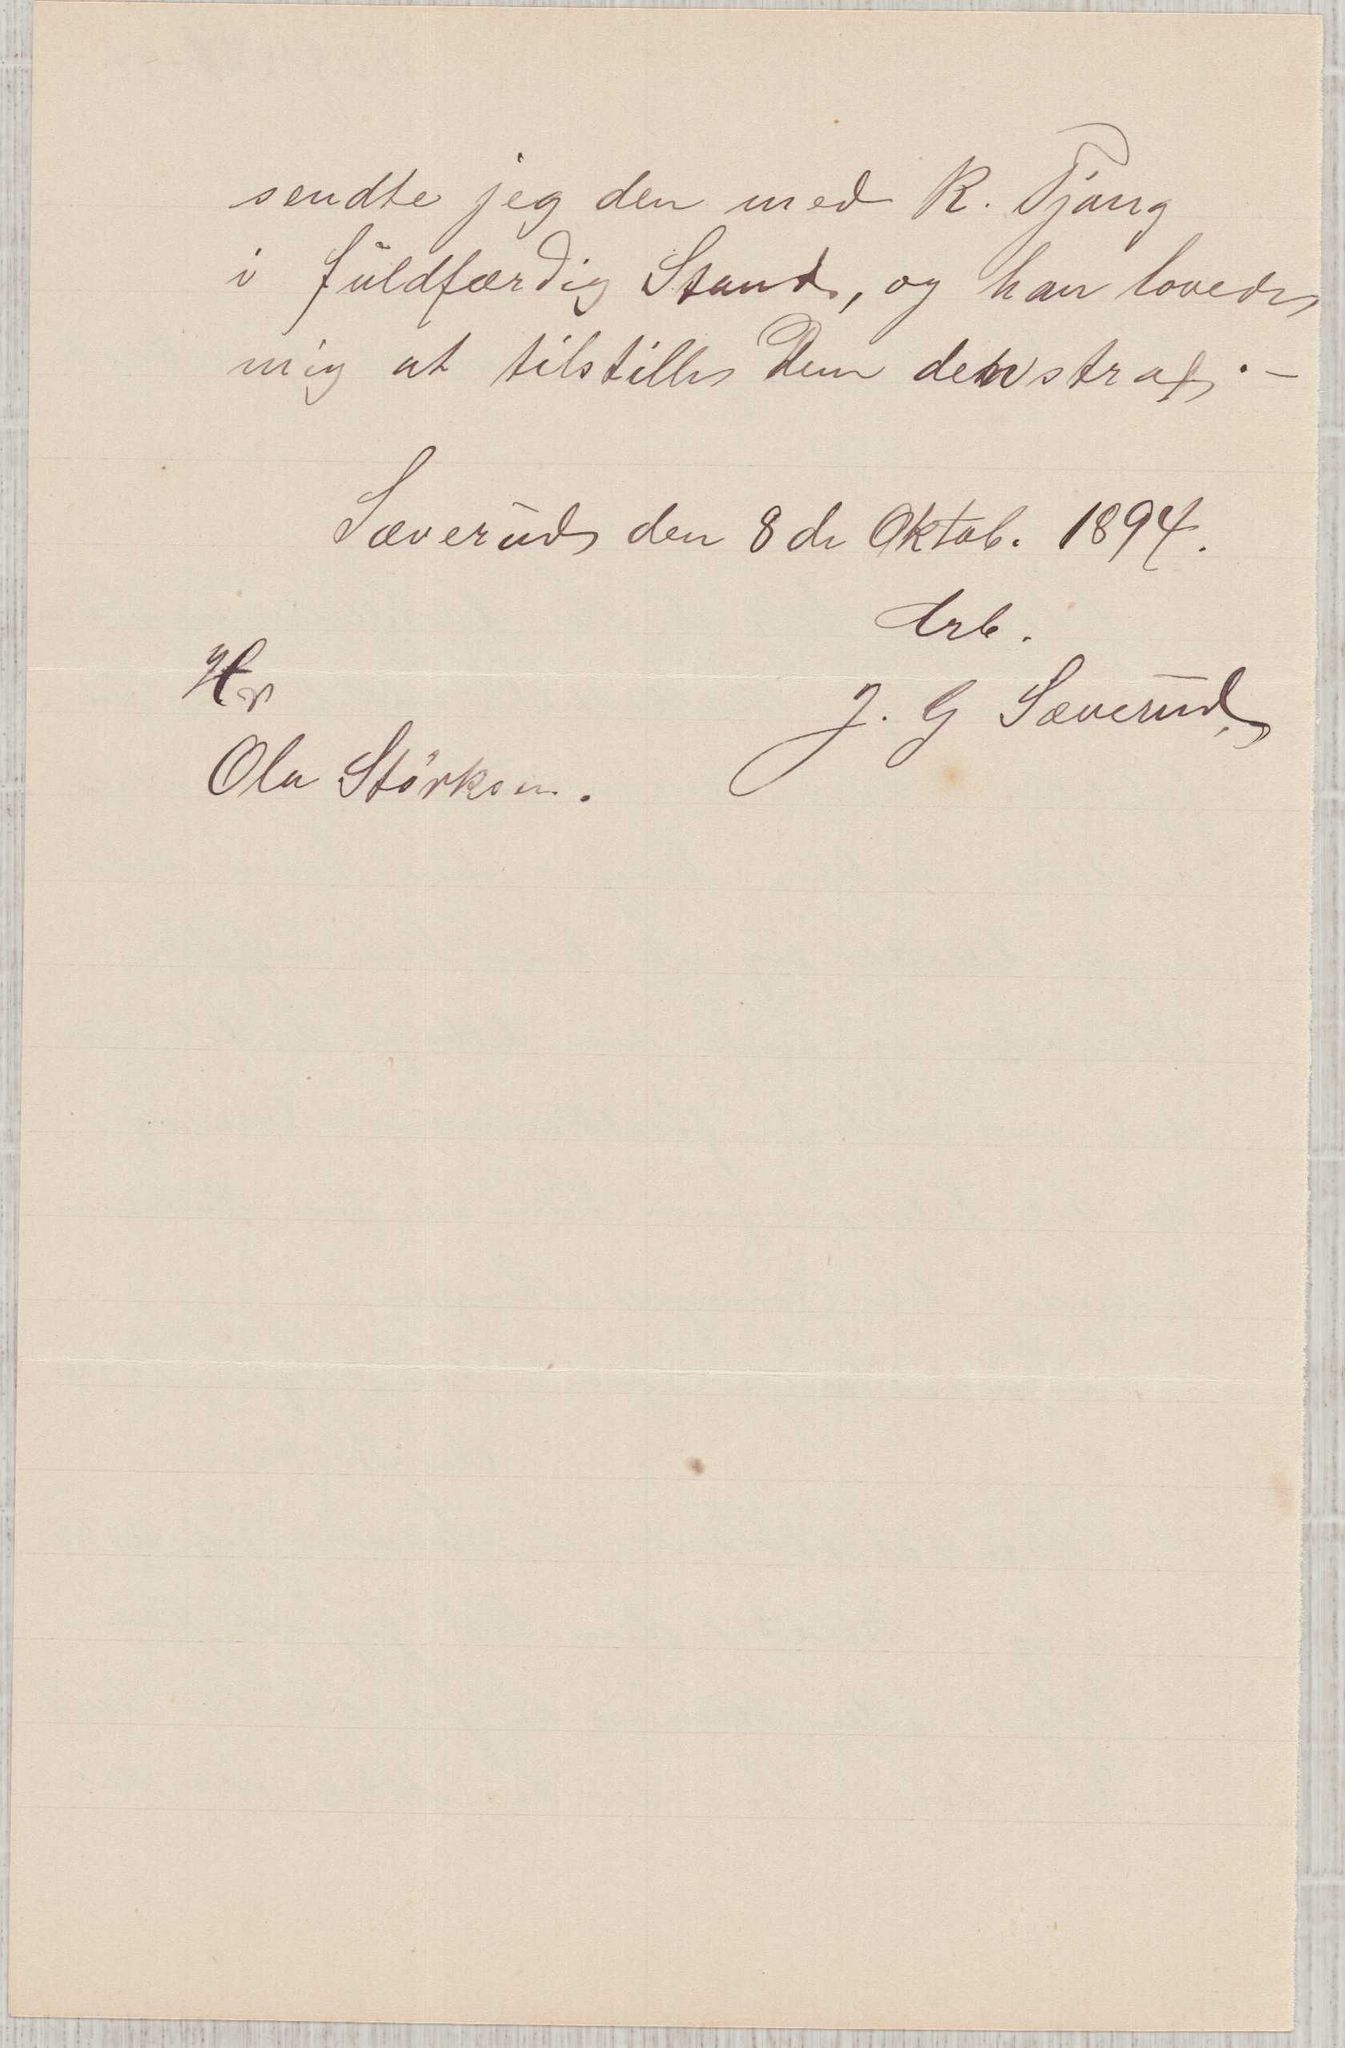 sendte jeg den med R. Tjong
i fuldfærdig Stand, og han lovede
mig at tilstille Dem den strax. –
Sæverud den 8de Oktob. 1894.
Arb.
Hr
J. G Sæverud,
Ola Störksen.